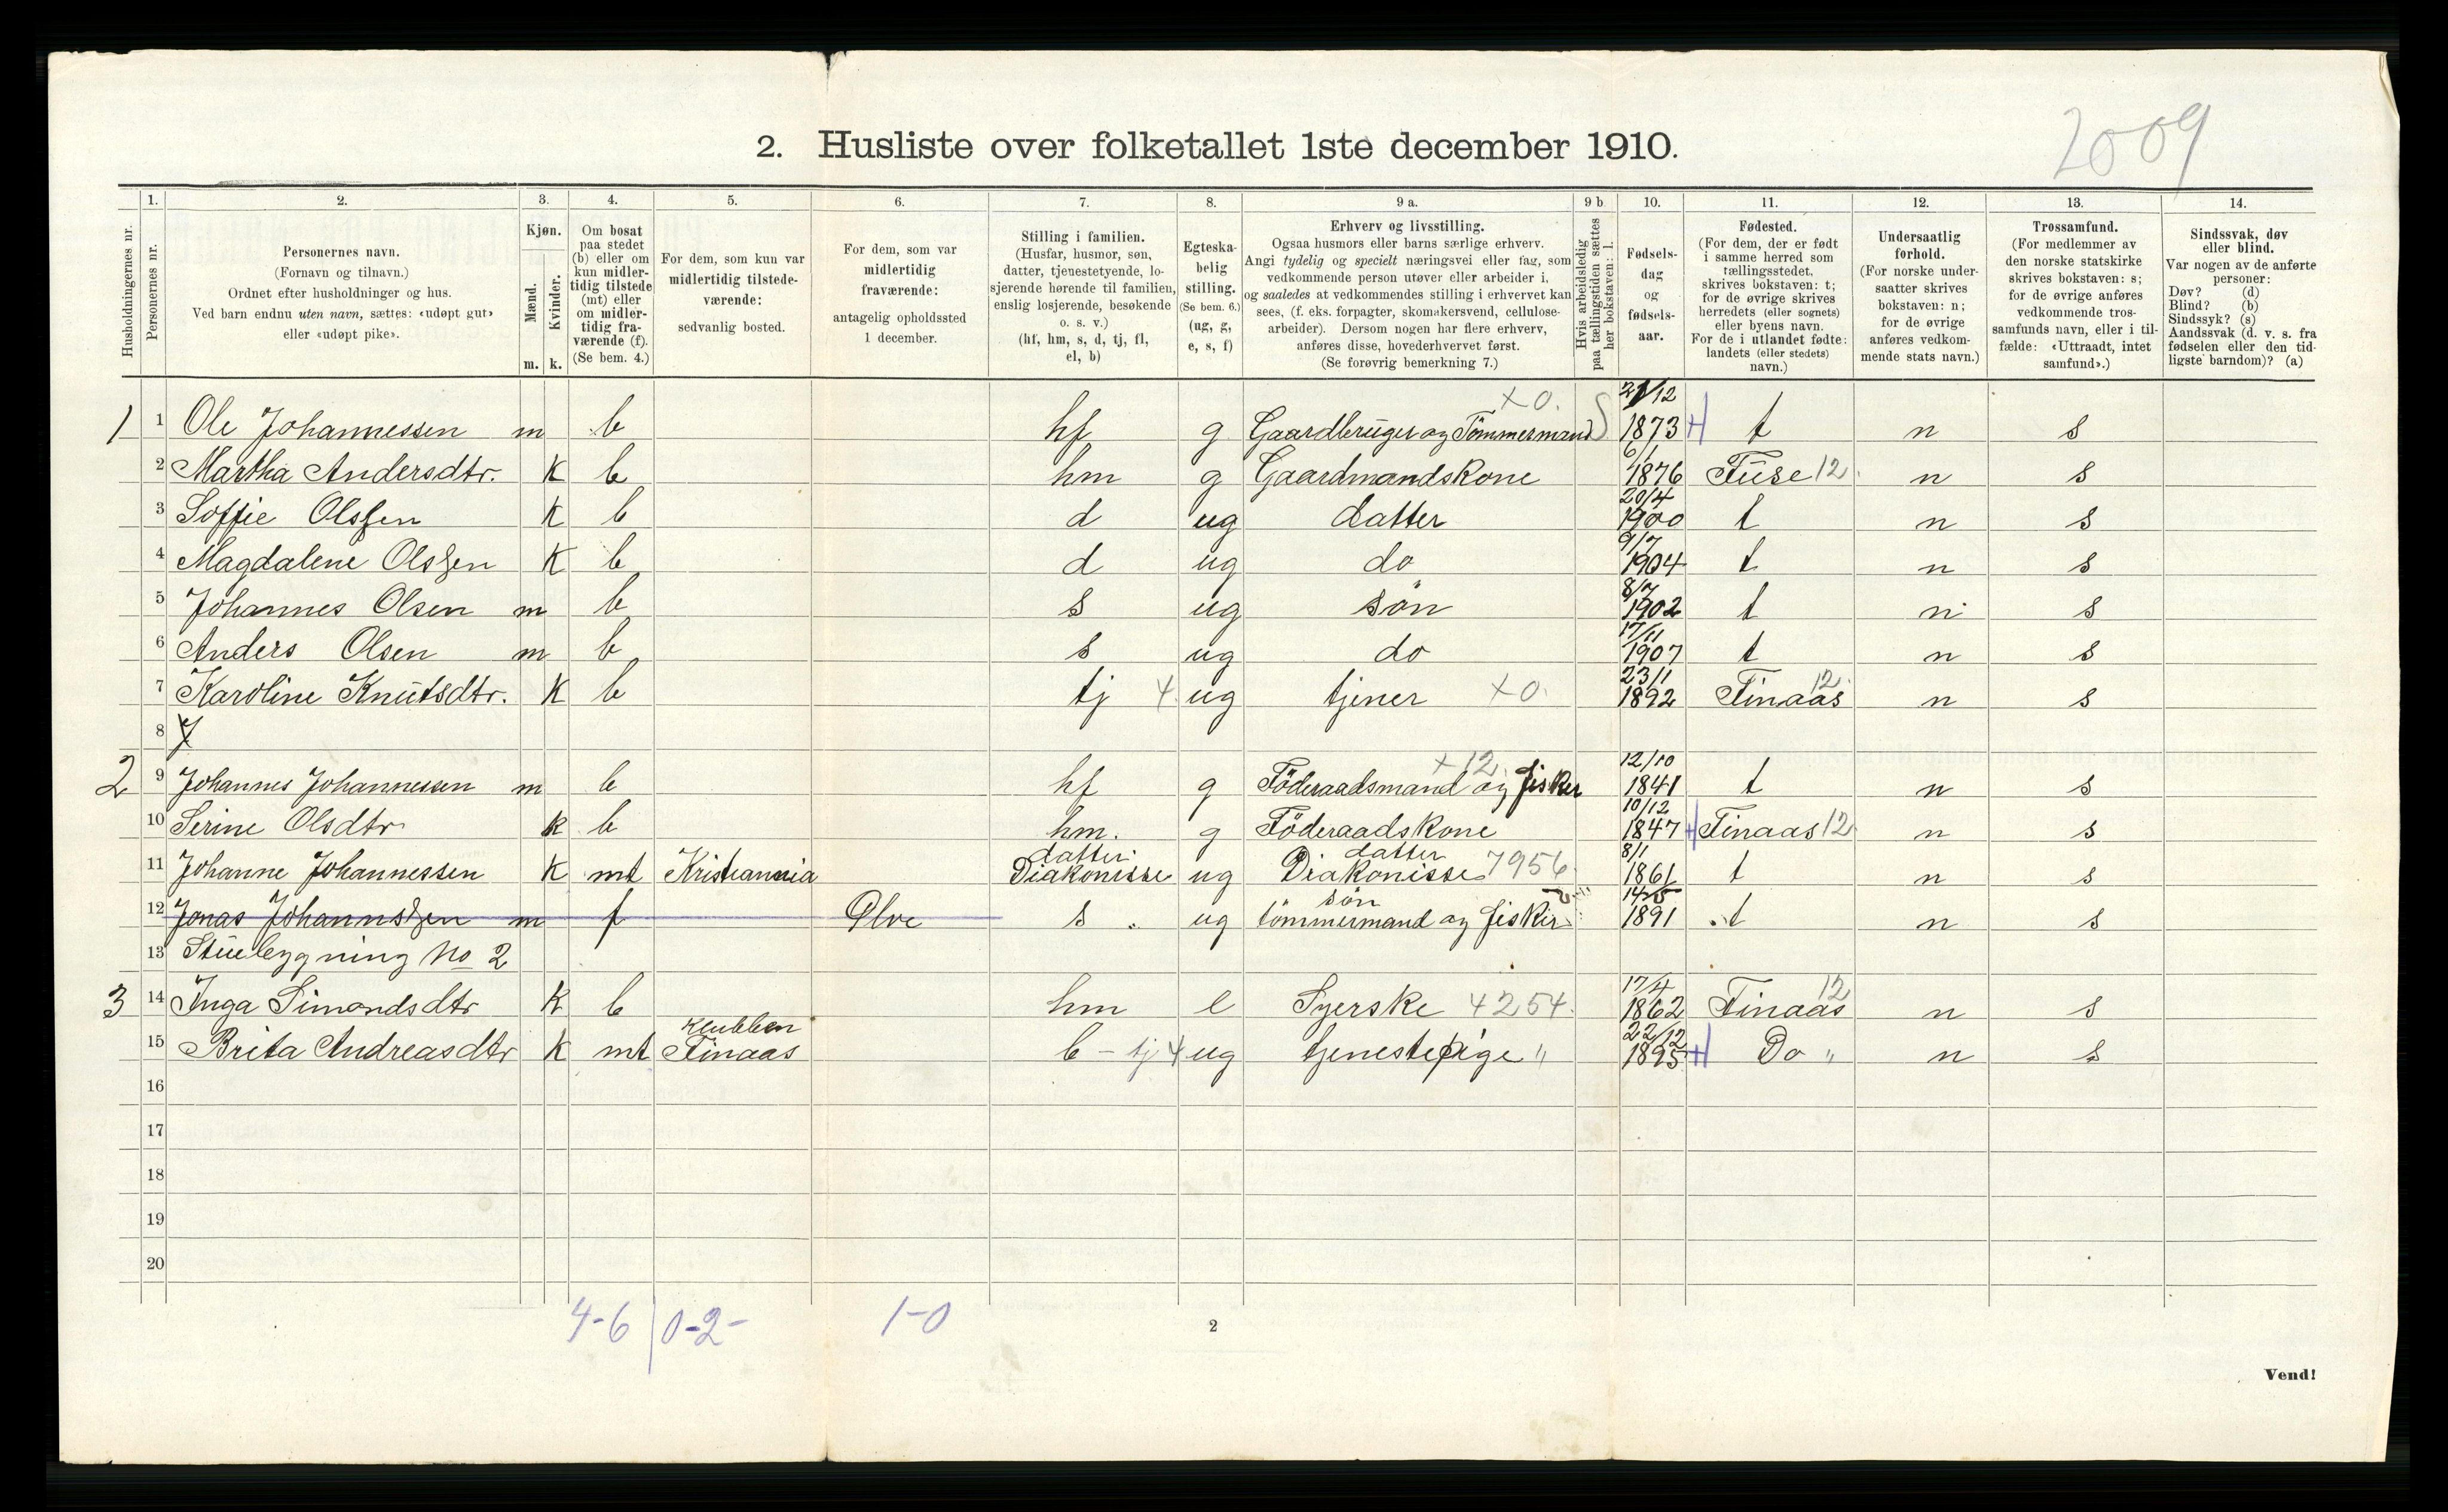 2009
2. Husliste over folketallet 1ste december 1910.
Husholdningernes nr.
1.
Personernes nr.
2.
Personernes navn.
(Fornavn og tilnavn.)
Ordnet efter husholdninger og hus.
Ved barn endnu uten navn, sættes: «udøpt gut»
eller «udøpt pike».
3.
Kjøn.
Mænd.
Kvinder.
m. k.
4.
Om bosat
paa stedet
(b) eller om
kun midler-
tidig tilstede
(mt) eller
om midler-
tidig fra-
værende (f).
(Se bem. 4.)
5.
For dem, som kun var
midlertidig tilstede-
værende:
sedvanlig bosted.
6.
For dem, som var
midlertidig
fraværende:
antagelig opholdssted
1 december.
7.
Stilling i familien.
(Husfar, husmor, søn,
datter, tjenestetyende, lo-
sjerende hørende til familien,
enslig losjerende, besøkende
o. s. v.)
(hf, hm, s, d, tj, fl,
el, b)
8.
Egteska-
belig
stilling.
(Se bem. 6.)
(ug, g,
e, s, f)
9 a.
Erhverv og livsstilling.
Ogsaa husmors eller barns særlige erhverv.
Angi tydelig og specielt næringsvei eller fag, som
vedkommende person utøver eller arbeider i,
og saaledes at vedkommendes stilling i erhvervet kan
sees, (f. eks. forpagter, skomakersvend, cellulose-
arbeider). Dersom nogen har flere erhverv,
anføres disse, hovederhvervet først.
(Se forøvrig bemerkning 7.)
9 b
Hvis arbeidsledig
paa tællingstiden sættes
her bokstaven: l.
10.
Fødsels-
dag
og
fødsels-
aar.
11.
Fødested.
(For dem, der er født
i samme herred som
tællingsstedet,
skrives bokstaven: t;
for de øvrige skrives
herredets (eller sognets)
eller byens navn.
For de i utlandet fødte:
landets (eller stedets)
navn.)
12.
Undersaatlig
forhold.
(For norske under-
saatter skrives
bokstaven: n;
for de øvrige
anføres vedkom-
mende stats navn.)
13.
Trossamfund.
(For medlemmer av
den norske statskirke
skrives bokstaven: s;
for de øvrige anføres
vedkommende tros-
samfunds navn, eller i til-
fælde: «Uttraadt, intet
samfund».)
14.
Sindssvak, døv
eller blind.
Var nogen av de anførte
personer:
Døv? (d)
Blind? (b)
Sindssyk? (s)
Aandssvak (d. v. s. fra
fødselen eller den tid-
ligste barndom)? (a)
x0. 21/12
1 1 Ole Johannessen m b hf g Gaardbruger og Tömmermand 1873 t n s
6/1
2 Martha Andersdtr. K b hm g Gaardmandskone 1876 Fuse 12 n s
20/4
3 Soffie Olsen K b d ug datter 1900 t n s
9/7
4 Magdalene Olsen K b d ug do 1904 t n s
8/7
5 Johannes Olsen m b s ug søn 1902 t n s
17/11
6 Anders Olsen m b s ug do 1907 t n s
23/1 12
7 Karoline Knutsdtr. K b tj 4 ug tjener x0. 1892 Finaas n s
8
x12 12/10
2 9 Johannes Johannessen m b hf g Föderaadsmand og fisker 1841 t n s
10/12
10 Serine Olsdtr K b hm. g Föderaadskone 1847 Finaas 12 n s
datter datter 8/1
11 Johanne Johannessen K mt Kristiannia Diakonisse ug Diakonisse 7956 1861 t n s
søn
12 Jonas Johannssen m f Ølve s ug tömmermand og fisker 1891 t n s
13 Stuebygning No 2
17/4 12
3 14 Inga Simonsdtr K b hm e Syerske 4254. 1862 Finaas n s
Klubben 22/12
15 Brita Andreasdtr K mt Finaas b - tj 4 ug tjenestepige " 1895 Do " n s
16
17
18
19
20
4-6 0-2- 1-0
2
Vend!